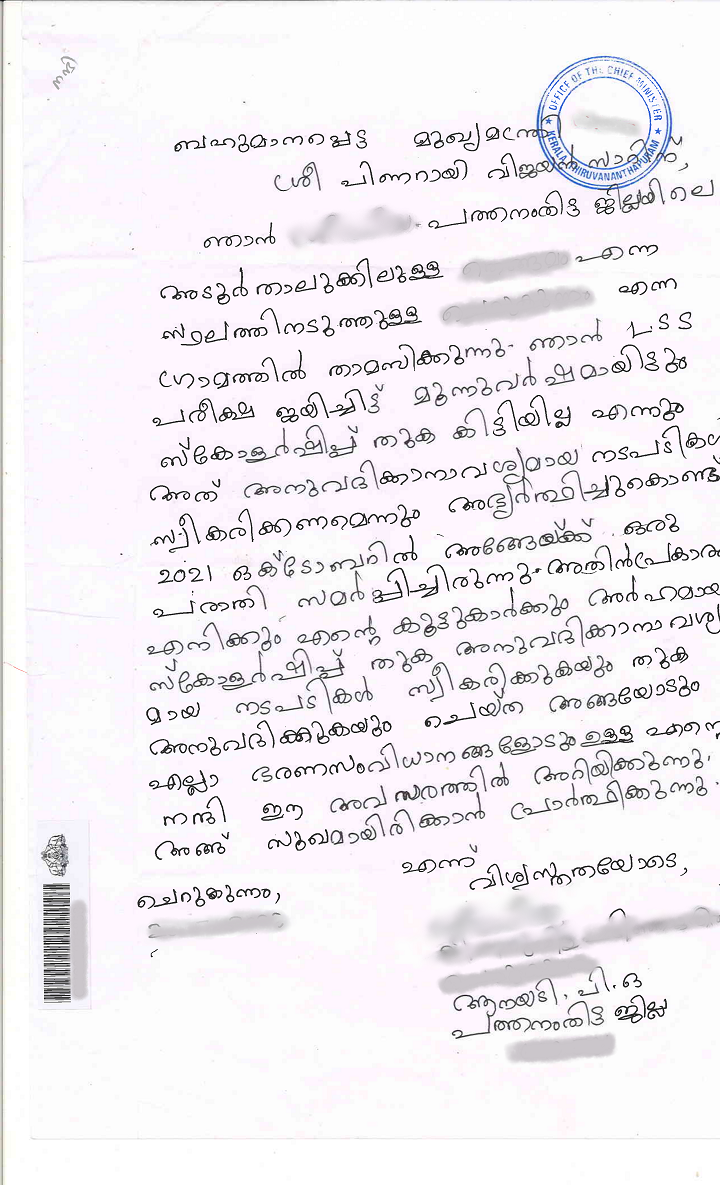 ബഹുമാനപ്പെട്ട മുഖ്യമന്ത്രി
OFFICE OF THE CHIEF MINISTER
KERALA, THIRUVANANTHAPURAM
ശ്രീ പിണറായി വിജയൻ സാറിന്,
ഞാൻ പത്തനംതിട്ട ജില്ലയിലെ
അടൂർ താലൂക്കിലുള്ള എന്ന
സ്ഥലത്തിനടുത്തുള്ള എന്ന
ഗ്രാമത്തിൽ താമസിക്കുന്നു. ഞാൻ LSS
പരീക്ഷ ജയിച്ചിട്ട് മൂന്നുവർഷമായിട്ടും
സ്കോളർഷിപ്പ് തുക കിട്ടിയില്ല എന്നും
അത് അനുവദിക്കാനാവശ്യമായ നടപടികൾ
സ്വീകരിക്കണമെന്നും അഭ്യർത്ഥിച്ചുകൊണ്ട്
2021 ഒക്ടോബറിൽ അങ്ങേയ്ക്ക് ഒരു
പരാതി സമർപ്പിച്ചിരുന്നു. അതിൻപ്രകാരം
എനിക്കും എന്റെ കൂട്ടുകാർക്കും അർഹമായ
സ്കോളർഷിപ്പ് തുക അനുവദിക്കാനാവശ്യ
മായ നടപടികൾ സ്വീകരിക്കുകയും തുക
അനുവദിക്കുകയും ചെയ്ത അങ്ങയോടും
എല്ലാ ഭരണസംവിധാനങ്ങളോടും ഉള്ള എന്റെ
നന്ദി ഈ അവസരത്തിൽ അറിയിക്കുന്നു.
അങ്ങ് സുഖമായിരിക്കാൻ പ്രാർത്ഥിക്കുന്നു.
എന്ന്
വിശ്വസ്തതയോടെ,
ചെറുകുന്നം,
ആനയടി. പി. ഒ
പത്തനംതിട്ട ജില്ല